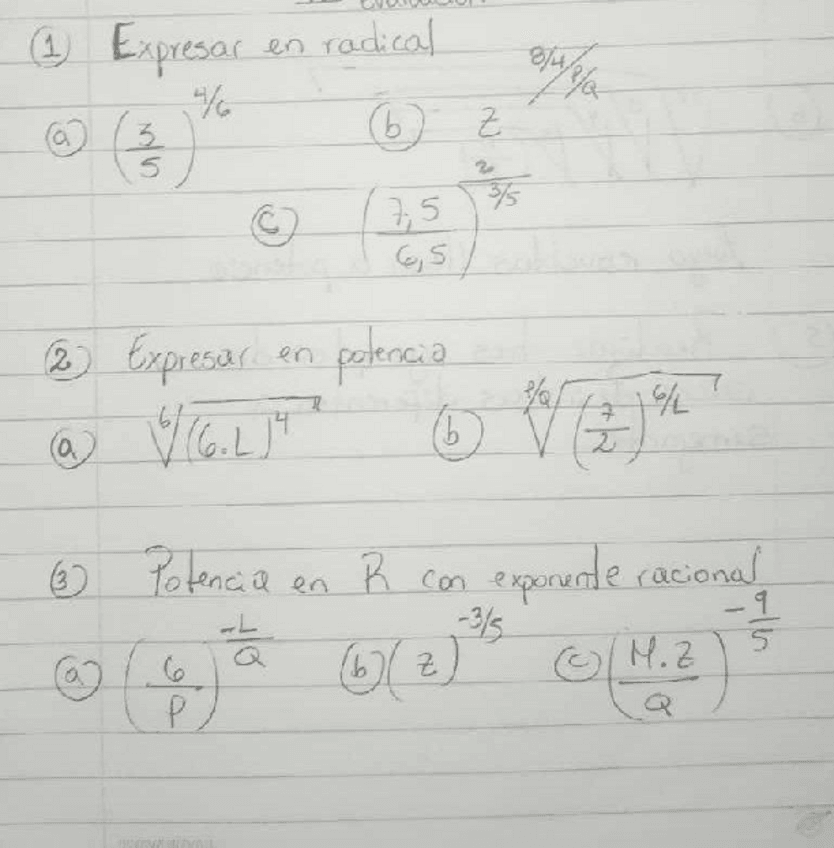 evaluación
① Expresar en radical
ⓐ (3/5)^4/6 ⓑ Z^8/4/P/Q
ⓒ (7,5/6,5)^2/3/5
② Expresar en potencia
ⓐ ⁶√(6.L)^4 ⓑ P/Q√(7/2)^6/L
③ Potencia en R con exponente racional
ⓐ (6/P)^-L/Q ⓑ (Z)^-3/5 ⓒ (M.Z/Q)^-9/5